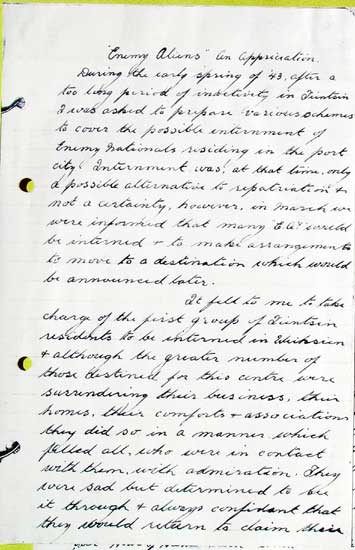 "Enemy Aliens" An Appreciation.
During the early spring of '43, after a
too long period of inactivity in Tientsin
I was asked to prepare various schemes
to cover the possible internment of
Enemy Nationals residing in the port
city. Internment was, at that time, only
a possible alternative to repatriation &
not a certainty, however, in March we
were informed that many "E.A's" would
be interned & to make arrangements
to move to a destination which would
be announced later.
It fell to me to take
charge of the first group of Tientsin
residents to be interned in Weihsien
& although the greater number of
those destined for this centre were
surrendering their business, their
homes, their comforts & associations
they did so in a manner which
filled all, who were in contact
with them, with admiration. They
were sad but determined to see
it through & always confidant that
they would return to claim their